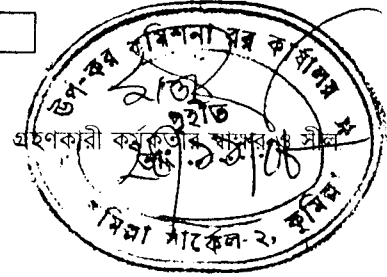 উপ-কর কমিশনারের কার্যালয়
গৃহীত
গ্রহণকারী কর্মকর্তার স্বাক্ষর ও সীল
মিল্লা সার্কেল-২, কুমিল্লা